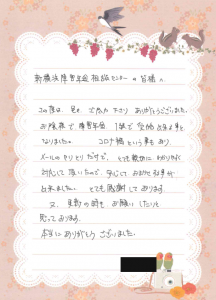 新横浜障害年金相談センターの皆様へ
この度は、見つけて下さり ありがとうございました。
お陰様で障害年金 1級で受給出来る事と
なりました。 コロナ禍という事もあり、
メールのやりとりだけで、とても親切に わかりやすく
対応して頂いたので、安心して おまかせする事が
出来ました。 とても感謝しております。
又、更新の時も お願いしたいと
思っております。
本当に ありがとう ございました。